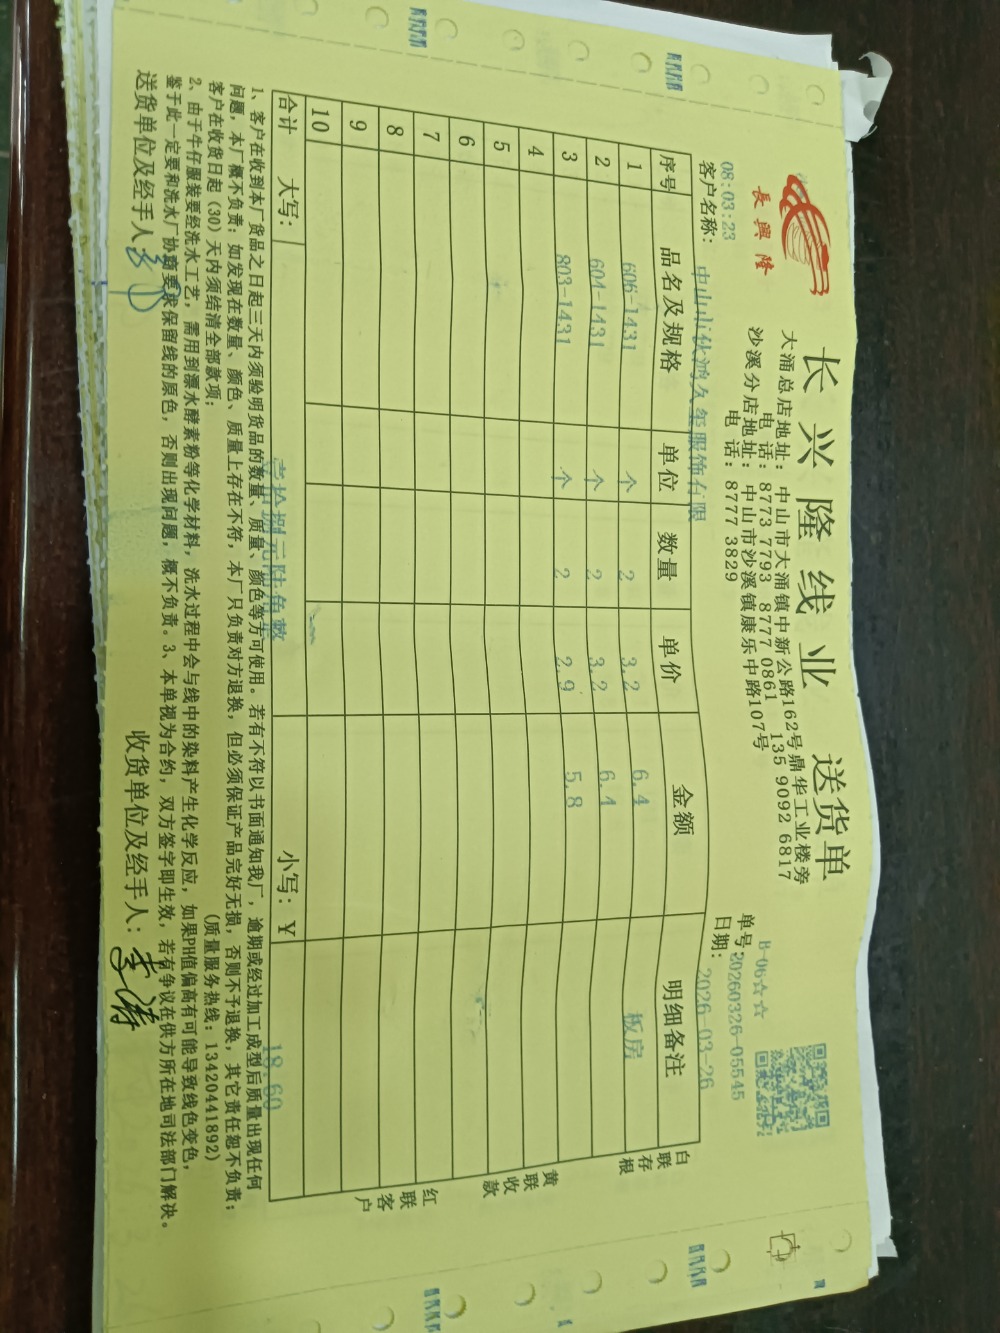 長興隆
长兴隆线业 送货单
大涌总店地址：中山市大涌镇中新公路162号鼎华工业楼旁
电话：8773 7793 8777 0861 135 9092 6817
沙溪分店地址：中山市沙溪镇康乐中路107号
电话：8777 3829
B-06☆☆
单号：20260326-05545
08:03:23
日期：2026-03-26
客户名称：中山市秋鸿久玺服饰有限
序号 品名及规格 单位 数量 单价 金额 明细备注
1 606-1431 个 2 3.2 6.4 板房
2 604-1431 个 2 3.2 6.4
3 803-1431 个 2 2.9 5.8
4
5
6
7
8
9
10
合计 大写：壹拾捌元陆角整 小写：￥ 18.60
白联存根
黄联收款
红联客户
1、客户在收到本厂货品之日起三天内须验明货品的数量、质量、颜色等方可使用。若有不符以书面通知我厂，逾期或经过加工成型后质量出现任何
问题，本厂概不负责；如发现在数量、颜色、质量上存在不符，本厂只负责对方退换，但必须保证产品完好无损，否则不予退换，其它责任恕不负责；
客户在收货日起（30）天内须结清全部款项； （质量服务热线：13420441892）
2、由于牛仔服装要经洗水工艺，需用到漂水酵素粉等化学材料，洗水过程中会与线中的染料产生化学反应，如果PH值偏高有可能导致线色变色，
鉴于此一定要和洗水厂协商要求保留线的原色，否则出现问题，概不负责。3、本单视为合约，双方签字即生效，若有争议在供方所在地司法部门解决。
送货单位及经手人： 收货单位及经手人：李涛